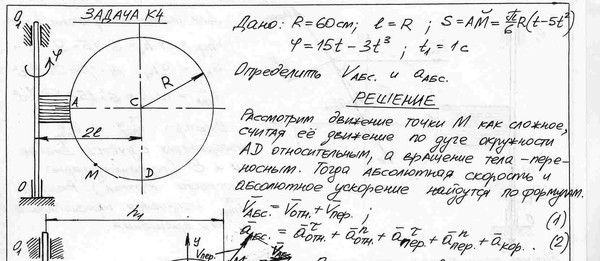 ЗАДАЧА К4
Дано: R=60см; l=R; S=AM̆=π/6 R(t-5t²)
φ=15t-3t³; t₁=1с
Определить Vабс. и aабс.
РЕШЕНИЕ
Рассмотрим движение точки M как сложное,
считая её движение по дуге окружности
AD относительным, а вращение тела - пере-
носным. Тогда абсолютная скорость и
абсолютное ускорение найдутся по формулам.
V̄абс. = V̄отн. + V̄пер.; (1)
āабс. = āτотн. + ānотн. + āτпер. + ānпер. + āкор.. (2)
O₁
φ
R
A
C
2l
M
D
O
h₁
O₁
y
Vпер.
M